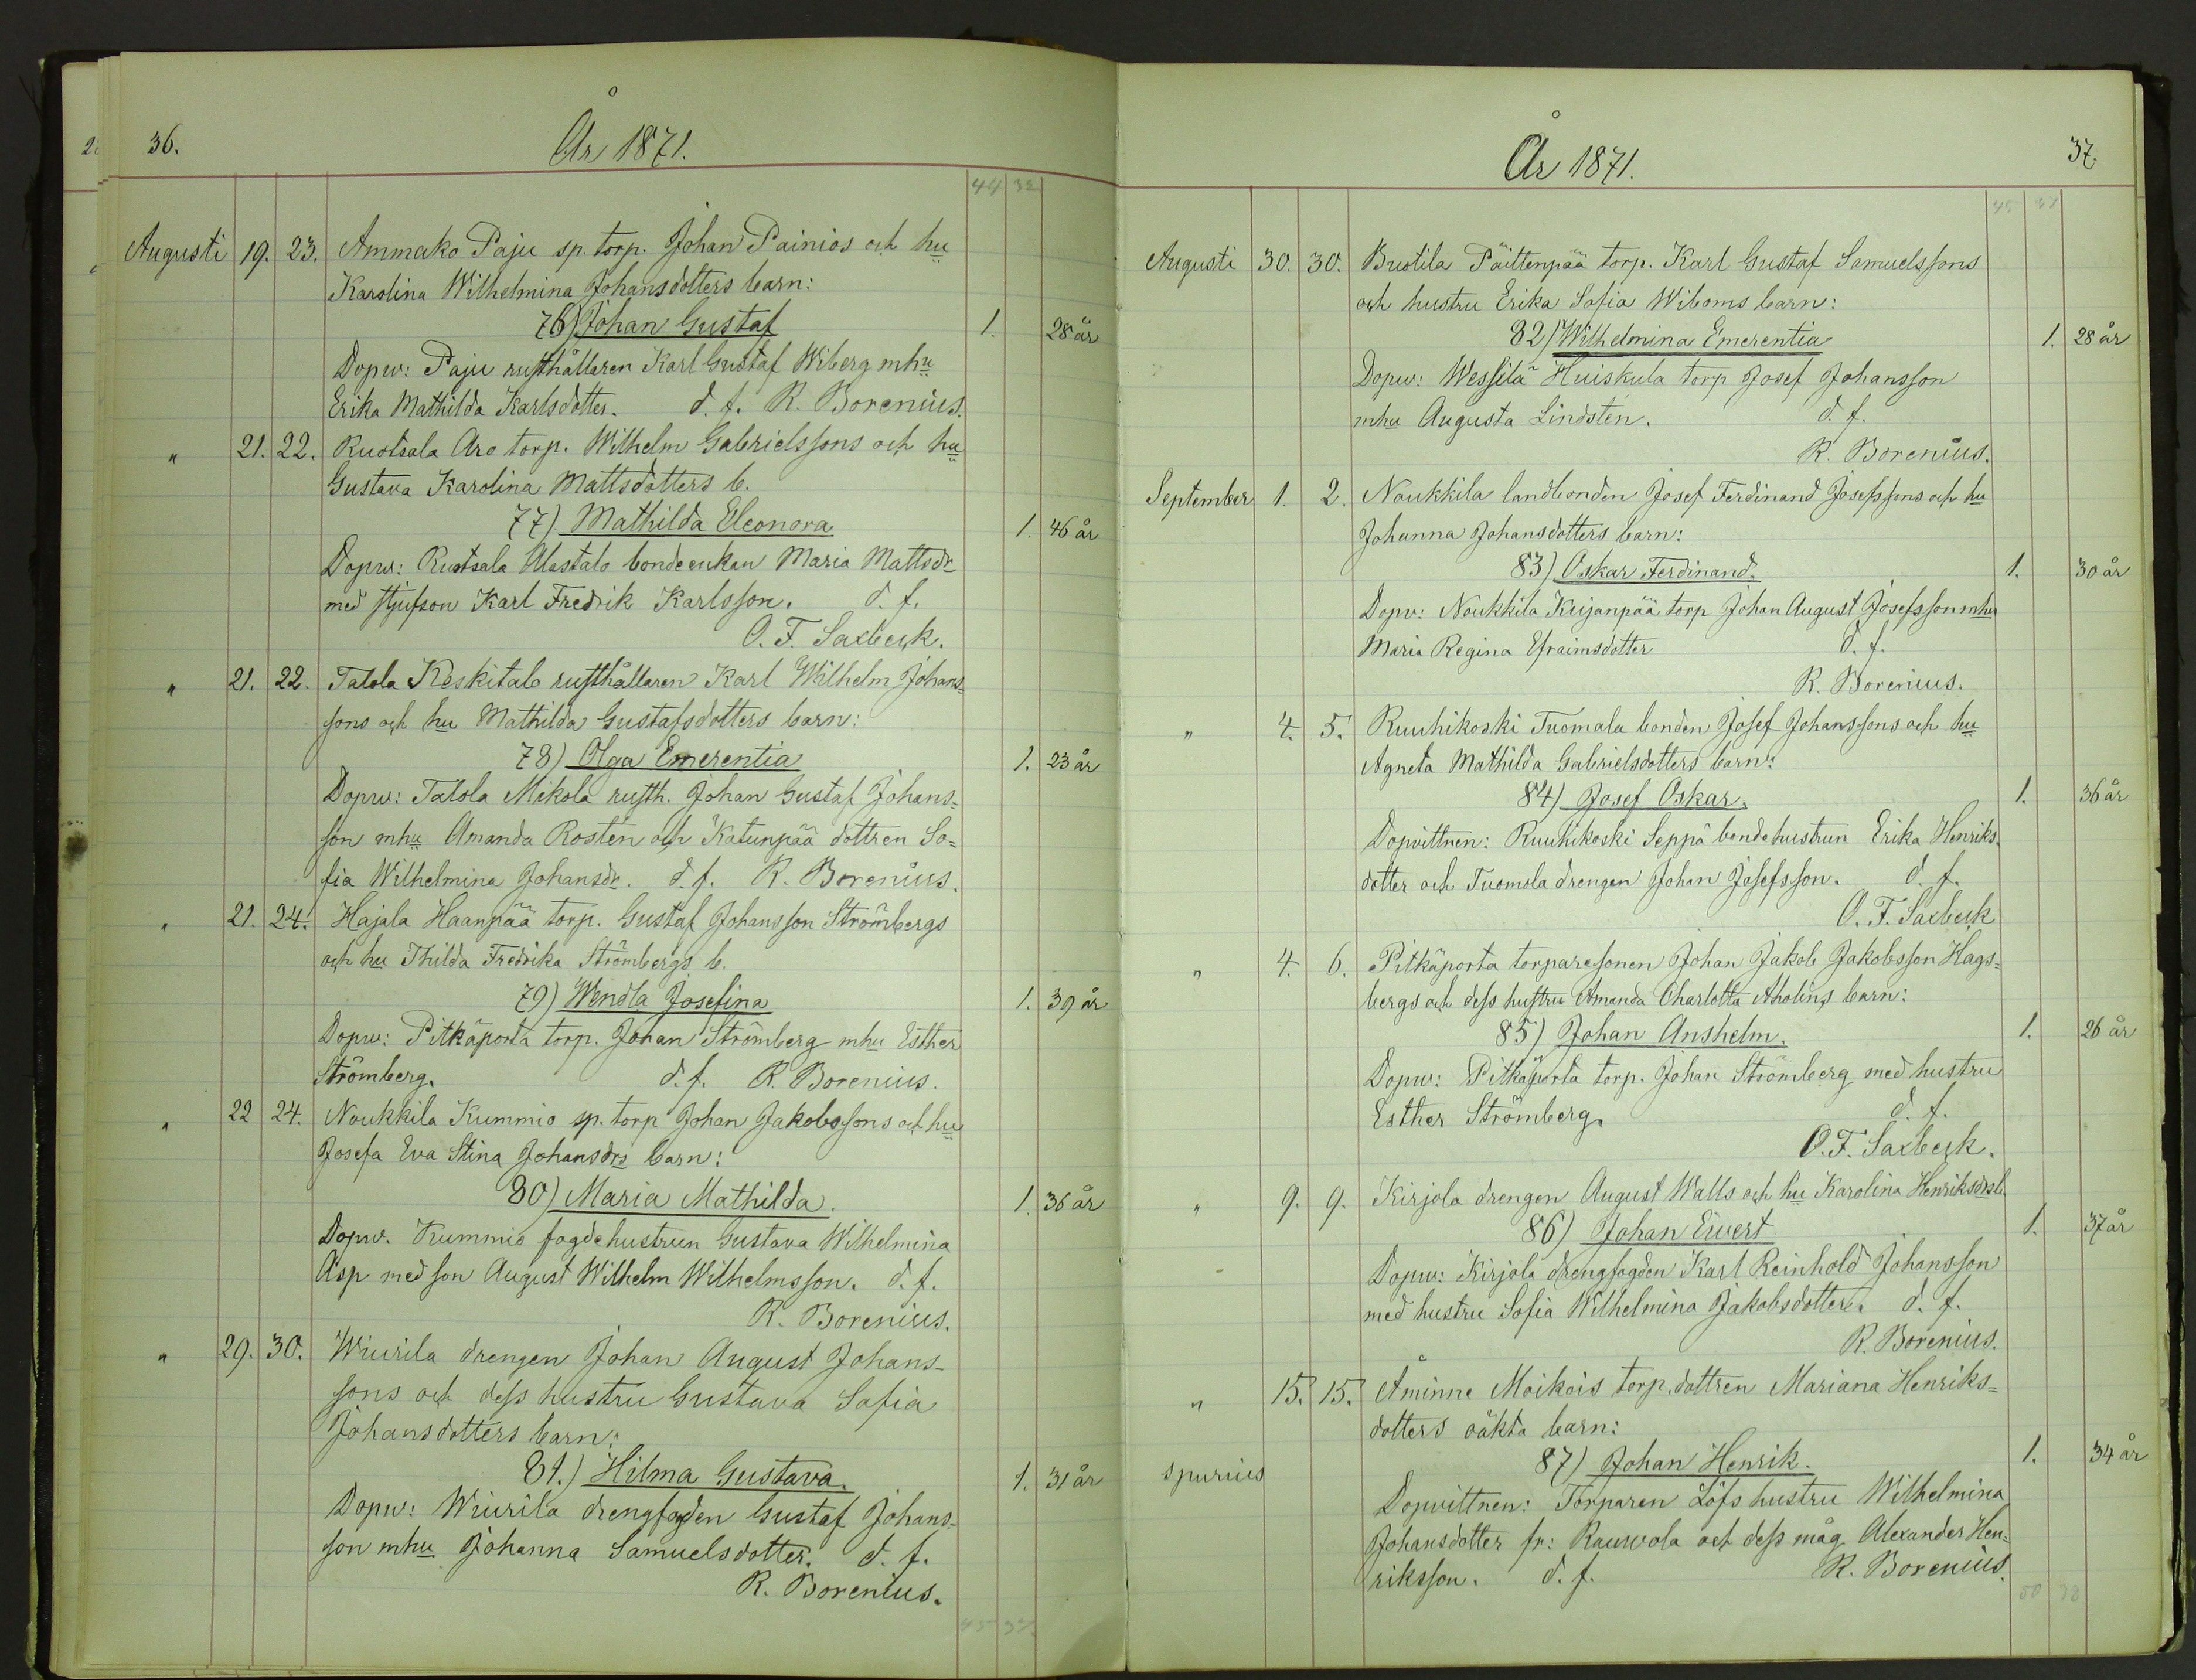 36.
År 1871.
44 32
Augusti 19. 23. Ammako Paju sp. torp. Johan Painios och hu
Karolina Wilhelmina Johansdotters barn:
76) Johan Gustaf 1. 28 år
Dopw: Paju rusthållaren Karl Gustaf Wiberg mhu
Erika Mathilda Karlsdotter. d. f. R. Borenius.
" 21. 22. Ruotsala Aro torp. Wilhelm Gabrielssons och hu
Gustava Karolina Mattsdotters b.
77) Mathilda Eleonora 1. 46 år
Dopw: Ruotsala Alastalo bondeenkan Maria Mattsdr
med stjufson Karl Fredrik Karlsson. d. f.
O. F. Saxbeck.
" 21. 22. Tatola Keskitalo rusthållaren Karl Wilhelm Johans-
sons och hu Mathilda Gustafsdotters barn:
78) Olga Emerentia 1. 23 år
Dopw: Tatola Mikola rusth. Johan Gustaf Johans=
son mhu Amanda Rostén och Katunpää dottren So=
fia Wilhelmina Johansdr. d. f. R. Borenius.
" 21. 24. Hajala Haanpää torp. Gustaf Johansson Strömbergs
och hu Thilda Fredrika Strömbergs b.
79) Wendla Josefina 1. 39 år
Dopw: Pitkäporta torp. Johan Strömberg mhu Esther
Strömberg. d. f. R. Borenius.
" 22 24. Noukkila Kummio sp. torp Johan Jakobssons och hu
Josefa Eva Stina Johansdrs barn:
80) Maria Mathilda. 1. 36 år
Dopw. Kummio fogdehustrun Gustava Wilhelmina
Asp med son August Wilhelm Wilhelmsson. d. f.
R. Borenius.
" 29. 30. Wiurila drengen Johan August Johans-
sons och dess hustru Gustava Sofia
Johansdotters barn:
81.) Hilma Gustava. 1. 31 år
Dopw: Wiurila drengfogden Gustaf Johans-
son mhu Johanna Samuelsdotter. d. f.
R. Borenius.
45 37.
År 1871.
37.
45 37
Augusti 30. 30. Buotila Päittenpää torp. Karl Gustaf Samuelssons
och hustru Erika Sofia Wiboms barn:
82) Wilhelmina Emerentia 1. 28 år
Dopw: Wessilä Huiskula torp Josef Johansson
mhu Augusta Lindstén. d. f.
R. Borenius.
September 1. 2. Noukkila landbonden Josef Ferdinand Josefssons och hu
Johanna Johansdotters barn:
83) Oskar Ferdinand. 1. 30 år
Dopw: Noukkila Kujanpää torp Johan August Josefsson mhu
Maria Regina Efraimsdotter d. f.
R. Borenius.
" 4. 5. Ruuhikoski Tuomala bonden Josef Johanssons och hu
Agneta Mathilda Gabrielsdotters barn:
84) Josef Oskar. 1. 36 år
Dopvittnen: Ruuhikoski Seppä bondehustrun Erika Henriks-
dotter och Tuomola drengen Johan Josefsson. d. f.
O. F. Saxbeck
" 4. 6. Pitkäporta torparesonen Johan Jakob Jakobsson Hags=
bergs och dess hustru Amanda Charlotta Aholins barn:
85) Johan Anshelm. 1. 26 år
Dopw: Pitkäporta torp. Johan Strömberg med hustru
Esther Strömberg. d. f.
O. F. Saxbeck.
" 9. 9. Kirjola drengen August Walls och hu Karolina Henriksdrs b.
86) Johan Eivert 1. 37 år
Dopw: Kirjola drengfogden Karl Reinhold Johansson
med hustru Sofia Wilhelmina Jakobsdotter. d. f.
R. Borenius.
" 15. 15. Åminne Moikois torp. dottren Mariana Henriks=
dotters oäkta barn:
87) Johan Henrik. 1. 34 år
spurius
Dopvittnen: Torparen Löfs hustru Wilhelmina
Johansdotter fr: Rauvola och dess måg Alexander Hen-
riksson. d. f. R. Borenius.
50 38